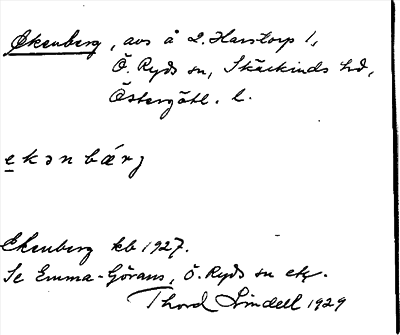 Ekenberg, avs å 2. Harstorp 1,
Ö. Ryds sn, Skärkinds hd,
Östergötl. l.
ekənbærj
Ekenberg kb 1927.
Se Emma-Görans, Ö. Ryds sn etc.
Thord Lindell 1929